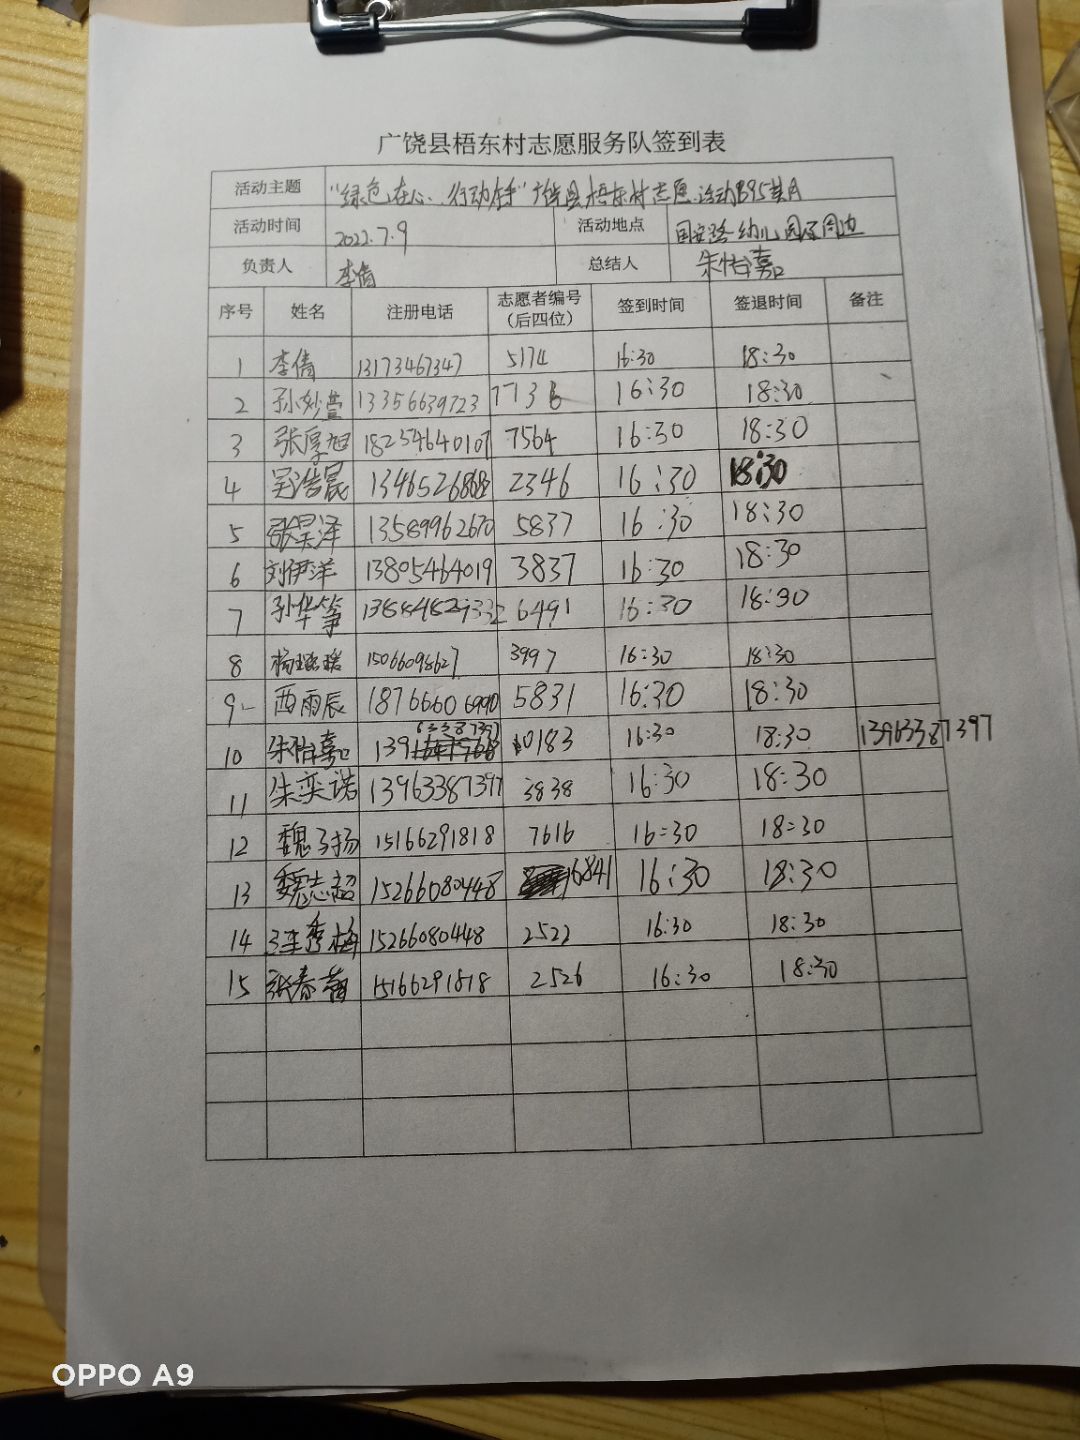 广饶县梧东村志愿服务队签到表
活动主题 "绿色在心、行动在手"广饶县梧东村志愿活动B95其月
活动时间 2022.7.9 活动地点 国安路幼儿园及周边
负责人 李倩 总结人 朱怡嘉
序号 姓名 注册电话 志愿者编号 签到时间 签退时间 备注
(后四位)
1 李倩 13173467347 5174 16:30 18:30
2 孙妙萱 13356639723 16:30 18:30
3 张厚旭 18254640107 7564 16:30 18:30
4 吴浩晨 2346 16:30 18:30
5 张昊泽 13589962670 5837 16:30 18:30
6 刘伊洋 13805464019 3837 16:30 18:30
7 孙华筝 6491 16:30 18:30
8 15066098627 3997 16:30 18:30
9 西雨辰 5831 16:30 18:30
10 朱怡嘉 139 63387397 0183 16:30 18:30 13963387397
11 朱奕诺 13963387397 3838 16:30 18:30
12 魏子扬 15166291818 7616 16:30 18:30
13 魏志超 15266080448 6841 16:30 18:30
14 王秀梅 15266080448 2522 16:30 18:30
15 张春苗 15166291818 2526 16:30 18:30
OPPO A9